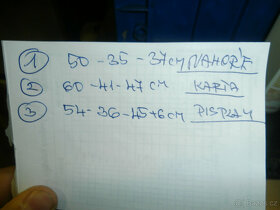 1 50-35-37cm NAHOŘE
2 60-41-47 cm KARTA
3 54-36-45+6cm DISPLAY